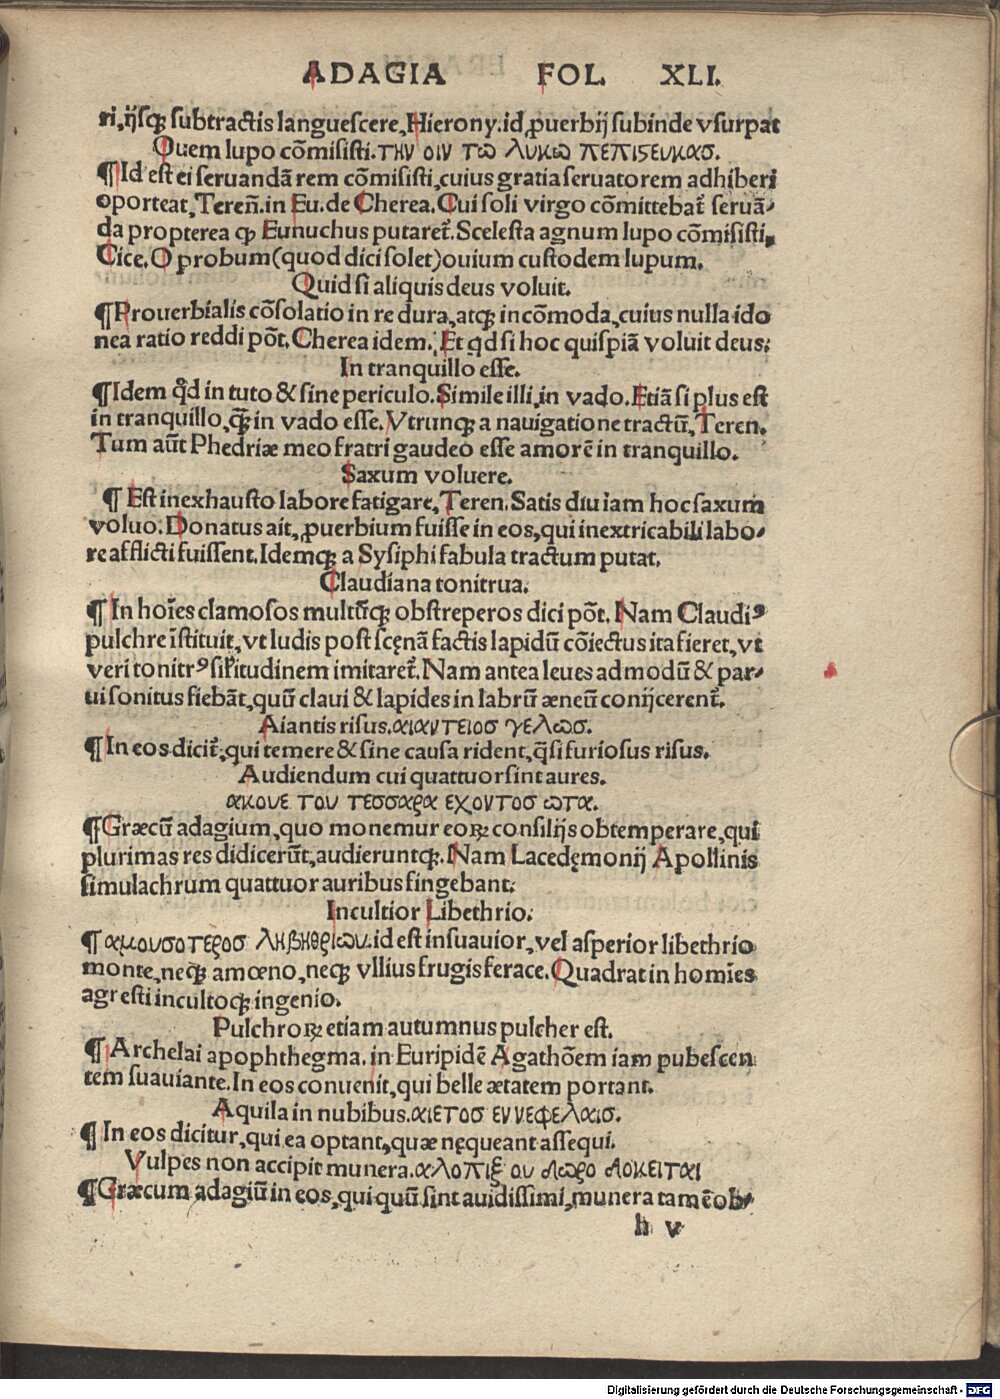 ADAGIA FOL. XLI.
ri, ijsqꝫ subtractis languescere, Hierony. id ꝓuerbij subinde vsurpat
Quem lupo cõmisisti. την οιν τω λυκω πεπιϛευκασ.
¶Id est ei seruandã rem cõmisisti, cuius gratia seruatorem adhiberi
oporteat, Tereñ. in Eu. de Cherea. Cui soli virgo cõmittebat̃ seruã-
da propterea ꝙ Eunuchus putaret̃. Scelesta agnum lupo cõmisisti,
Cice. O probum (quod dici solet) ouium custodem lupum.
Quid si aliquis deus voluit.
¶Prouerbialis cõsolatio in re dura, atqꝫ incõmoda, cuius nulla ido
nea ratio reddi põt. Cherea idem. Et qd si hoc quispiã voluit deus:
In tranquillo esse.
¶Idem qd̃ in tuto & sine periculo. Simile illi, in vado. Etiã si plus est
in tranquillo, q̃ꝫ in vado esse. Vtrunqꝫ a nauigatione tractũ, Teren.
Tum aũt Phedriæ meo fratri gaudeo esse amorẽ in tranquillo.
Saxum voluere.
¶ Est inexhausto labore fatigare, Teren. Satis diu iam hoc saxum
voluo. Donatus ait, ꝓuerbium fuisse in eos, qui inextricabili labo-
re afflicti fuissent. Idemqꝫ a Sysiphi fabula tractum putat.
Claudiana tonitrua.
¶ In hoĩes clamosos multũqꝫ obstreperos dici põt. Nam Claudiꝰ
pulchre ĩstituit, vt ludis post scęnã factis lapidũ cõiectus ita fieret, vt
veri tonitrꝰ sil̃itudinem imitaret̃. Nam antea leues admodũ & par-
ui sonitus fiebãt, quũ claui & lapides in labrũ æneũ conijcerent̃.
Aiantis risus. αιαντειοσ γελωσ.
¶In eos dicit̃, qui temere & sine causa rident, q̃si furiosus risus.
Audiendum cui quattuor sint aures.
ακουε του τεσσαρα εχοντοσ ωτα.
¶Græcũ adagium, quo monemur eoꝝ consilijs obtemperare, qui
plurimas res didicerũt, audieruntqꝫ. Nam Lacedęmonij Apollinis
simulachrum quattuor auribus fingebant.
Incultior Libethrio.
¶αμουσοτεροσ ληβηθριων. id est insuauior, vel asperior libethrio
monte, neqꝫ amœno, neqꝫ vllius frugis ferace. Quadrat in homĩes
agresti incultoqꝫ ingenio.
Pulchroꝝ etiam autumnus pulcher est.
¶ Archelai apophthegma. in Euripidẽ Agathõem iam pubescen
tem suauiante. In eos conuenit, qui belle ætatem portant.
Aquila in nubibus. αιετοσ εν νεφελαισ.
¶ In eos dicitur, qui ea optant, quæ nęqueant assequi.
Vulpes non accipit munera. αλοπιξ ου δωρο δοκειται
¶Græcum adagiũ in eos, qui quũ sint auidissimi, munera tamẽ ob-
h v
Digitalisierung gefördert durch die Deutsche Forschungsgemeinschaft - DFG